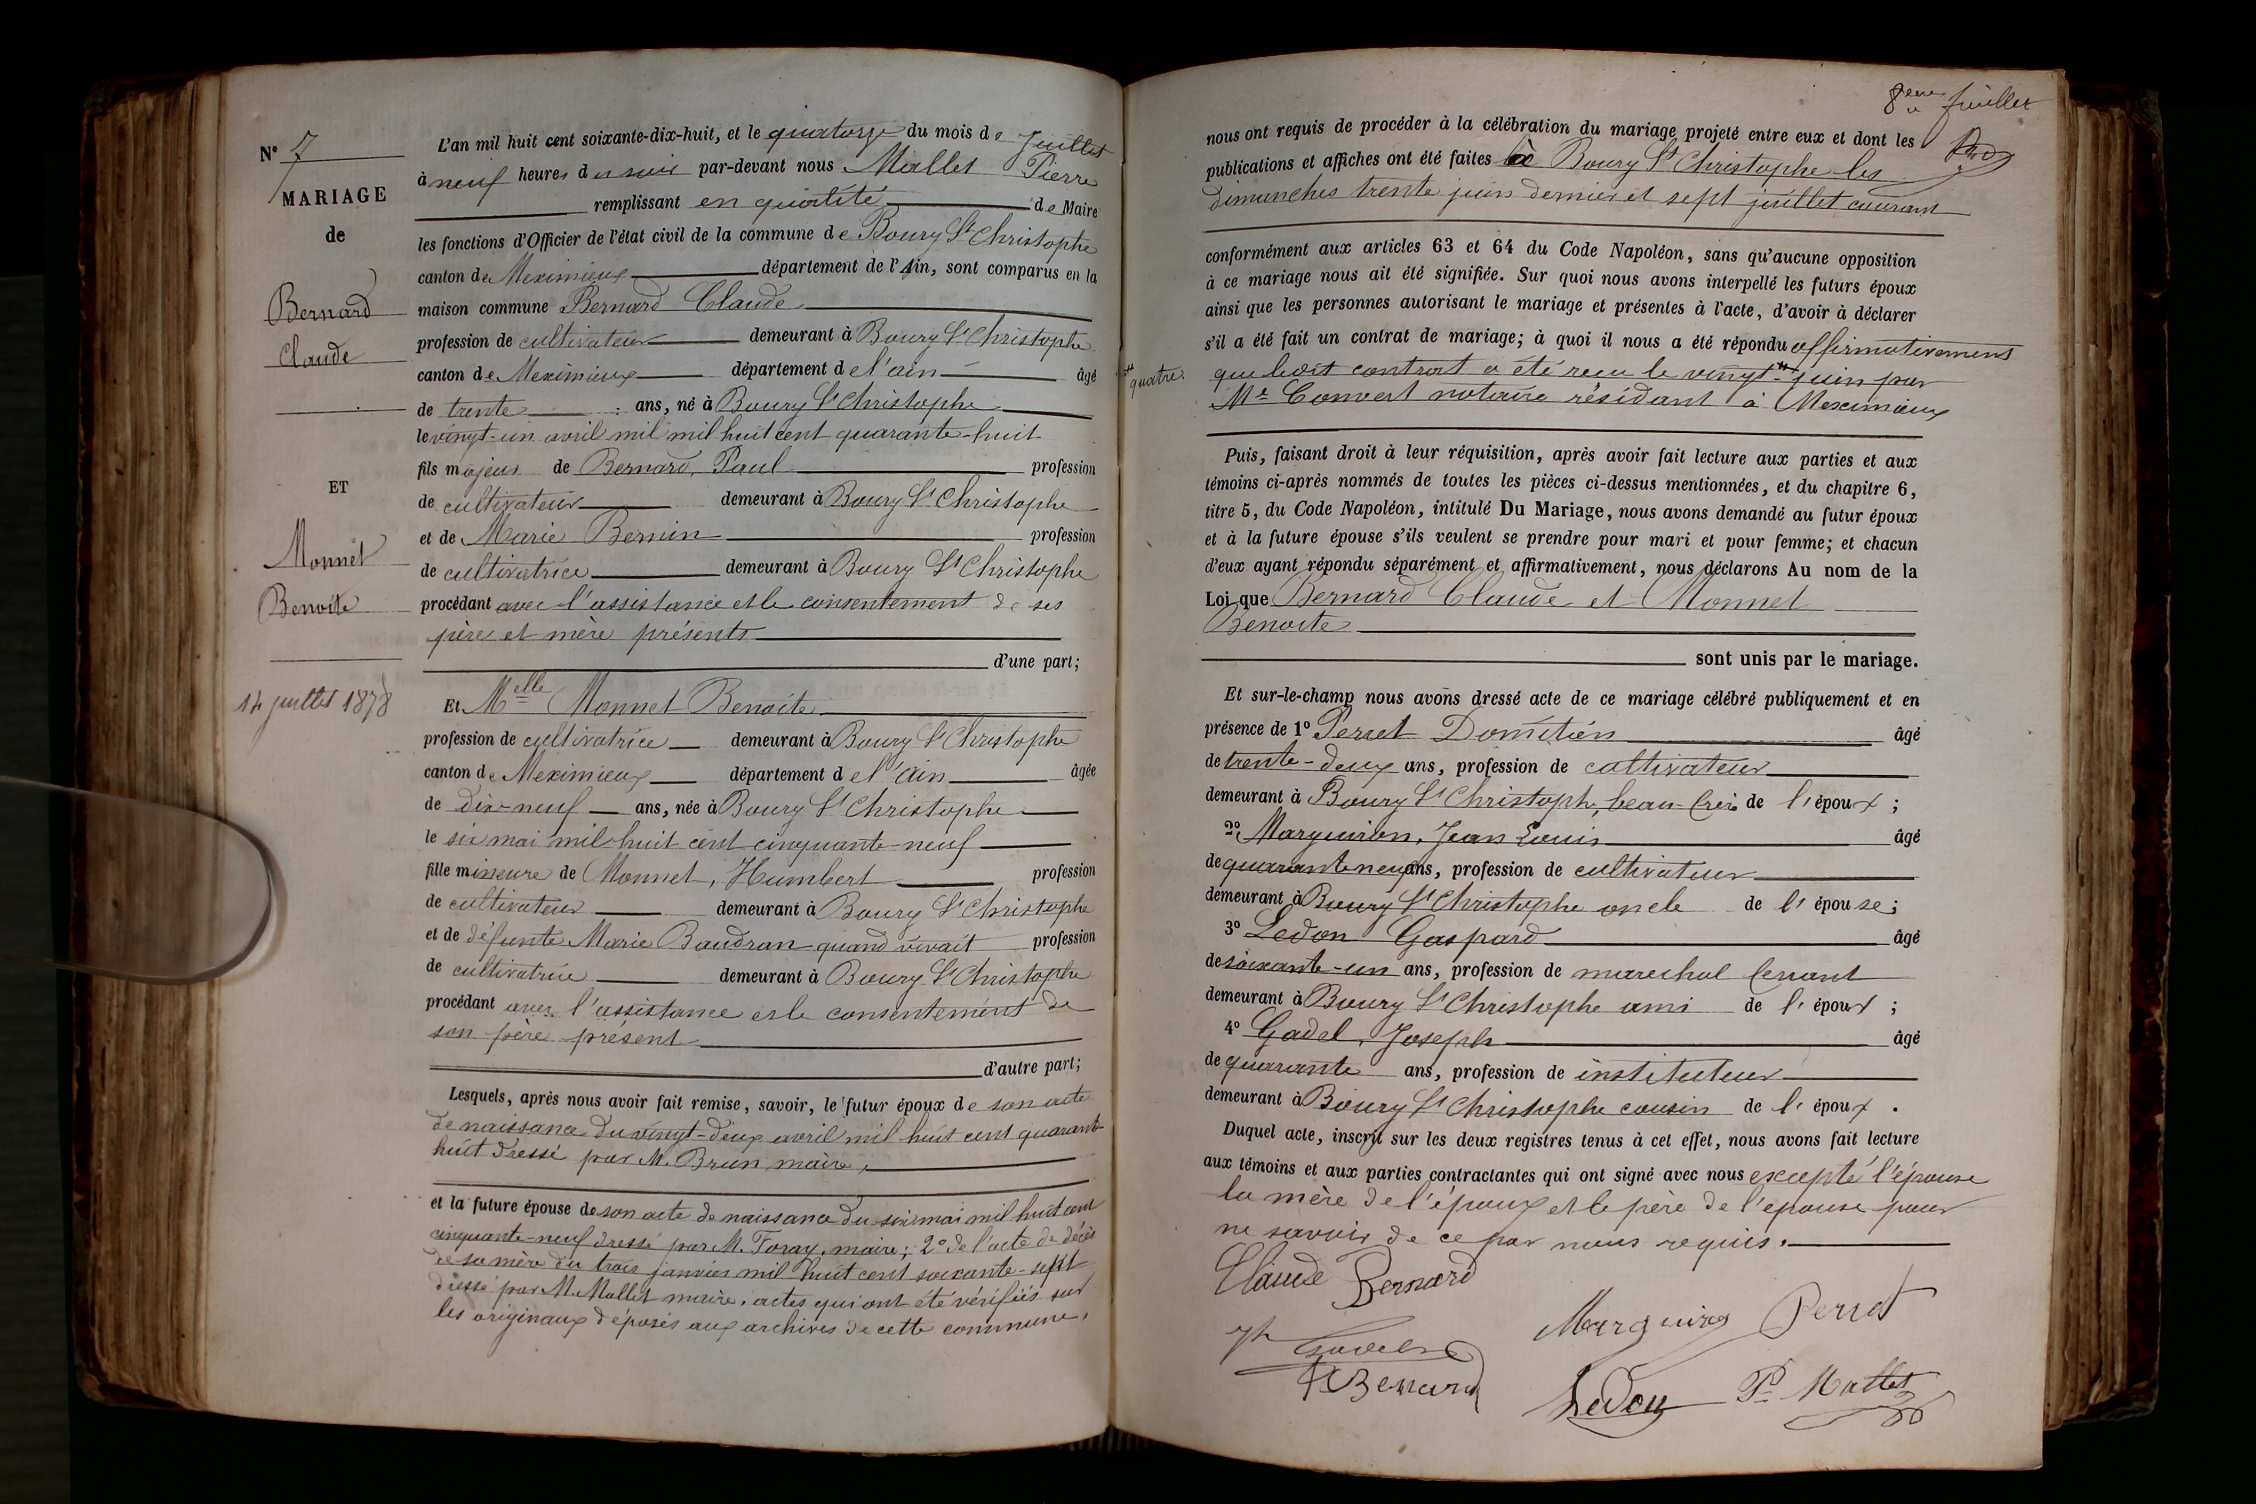 N° 7
MARIAGE
de
Bernard
Claude
ET
Monnet
Benoite
14 juillet 1878
L'an mil huit cent soixante-dix-huit, et le quatorze du mois de Juillet
à neuf heures du soir par-devant nous Mallet Pierre
remplissant en qualité de Maire
les fonctions d'Officier de l'état civil de la commune de Bourg St Christophe
canton de Meximieux département de l'Ain, sont comparus en la
maison commune Bernard Claude
profession de cultivateur demeurant à Bourg St Christophe
canton de Meximieux département de l'ain âgé
de trente ans, né à Bourg St Christophe
le vingt-un avril mil mil huit cent quarante-huit
fils majeur de Bernard, Paul profession
de cultivateur demeurant à Bourg St Christophe
et de Marie Bernin profession
de cultivatrice demeurant à Bourg St Christophe
procédant avec l'assistance et le consentement de ses
père et mère présents
d'une part;
Et Melle Monnet Benoite
profession de cultivatrice demeurant à Bourg St Christophe
canton de Meximieux département de l'ain âgée
de dix-neuf ans, née à Bourg St Christophe
le six mai mil huit cent cinquante-neuf
fille mineure de Monnet, Humbert profession
de cultivateur demeurant à Bourg St Christophe
et de défunte Marie Baudran quand vivait profession
de cultivatrice demeurant à Bourg St Christophe
procédant avec l'assistance et le consentement de
son père présent
d'autre part;
Lesquels, après nous avoir fait remise, savoir, le futur époux de son acte
de naissance du vingt-deux avril mil huit cent quarante
huit dressé par M. Brun maire,
et la future épouse de son acte de naissance du six mai mil huit cent
cinquante-neuf dressé par M. Foray, maire; 2° de l'acte de décès
de sa mère du trois janvier mil huit cent soixante-sept
dressé par M. Mallet maire, actes qui ont été vérifiés sur
les originaux déposés aux archives de cette commune.
8eme feuillet
nous ont requis de procéder à la célébration du mariage projeté entre eux et dont les
publications et affiches ont été faites à Bourg St Christophe les
dimanches trente juin dernier et sept juillet courant
conformément aux articles 63 et 64 du Code Napoléon, sans qu'aucune opposition
à ce mariage nous ait été signifiée. Sur quoi nous avons interpellé les futurs époux
ainsi que les personnes autorisant le mariage et présentes à l'acte, d'avoir à déclarer
s'il a été fait un contrat de mariage; à quoi il nous a été répondu affirmativement
quatre
que ledit contrat a été recu le vingt- juin par
Me Convert notaire résidant à Meximieux
Puis, faisant droit à leur réquisition, après avoir fait lecture aux parties et aux
témoins ci-après nommés de toutes les pièces ci-dessus mentionnées, et du chapitre 6,
titre 5, du Code Napoléon, intitulé Du Mariage, nous avons demandé au futur époux
et à la future épouse s'ils veulent se prendre pour mari et pour femme; et chacun
d'eux ayant répondu séparément et affirmativement, nous déclarons Au nom de la
Loi que Bernard Claude et Monnet
Benoite
sont unis par le mariage.
Et sur-le-champ nous avons dressé acte de ce mariage célébré publiquement et en
présence de 1° Perret Domitien âgé
de trente-deux ans, profession de cultivateur
demeurant à Bourg St Christophe, beau-frère de l'époux;
2° Marguiron, Jean Louis âgé
de quarante neuf ans, profession de cultivateur
demeurant à Bourg St Christophe oncle de l'épouse;
3° Ledon Gaspard âgé
de soixante-un ans, profession de marechal ferrant
demeurant à Bourg St Christophe ami de l'époux;
4° Gadel, Joseph âgé
de quarante ans, profession de instituteur
demeurant à Bourg St Christophe cousin de l'époux.
Duquel acte, inscrit sur les deux registres tenus à cet effet, nous avons fait lecture
aux témoins et aux parties contractantes qui ont signé avec nous excepté l'épouse
la mère de l'époux et le père de l'epouse pour
ne savoir de ce par nous requis.
Claude Bernard
Marguiron Perret
Jh Gadel
Bernard
Ledon P. Mallet